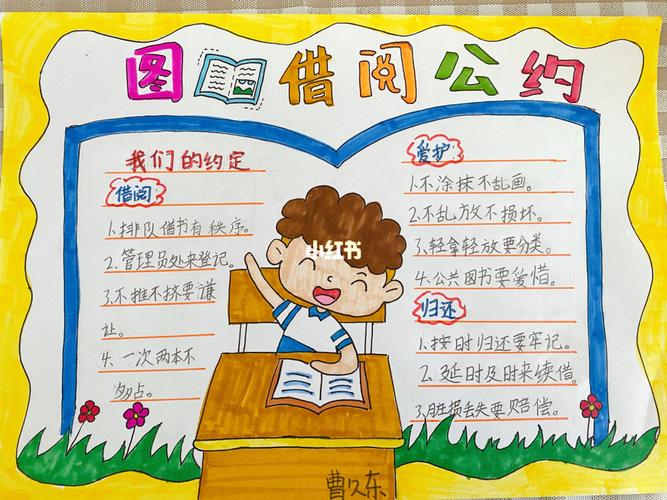 图借阅公约
我们的约定
借阅:
1.排队借书有秩序。
2.管理员处来登记。
3.不推不挤要谦
让。
4.一次两本不
多占。
爱护:
1.不涂抹不乱画。
2.不乱放不损坏。
3.轻拿轻放要分类。
4.公共图书要爱惜。
归还
1.按时归还要牢记。
2.延时及时来续借。
3.脏损丢失要赔偿。
小红书
曹久东